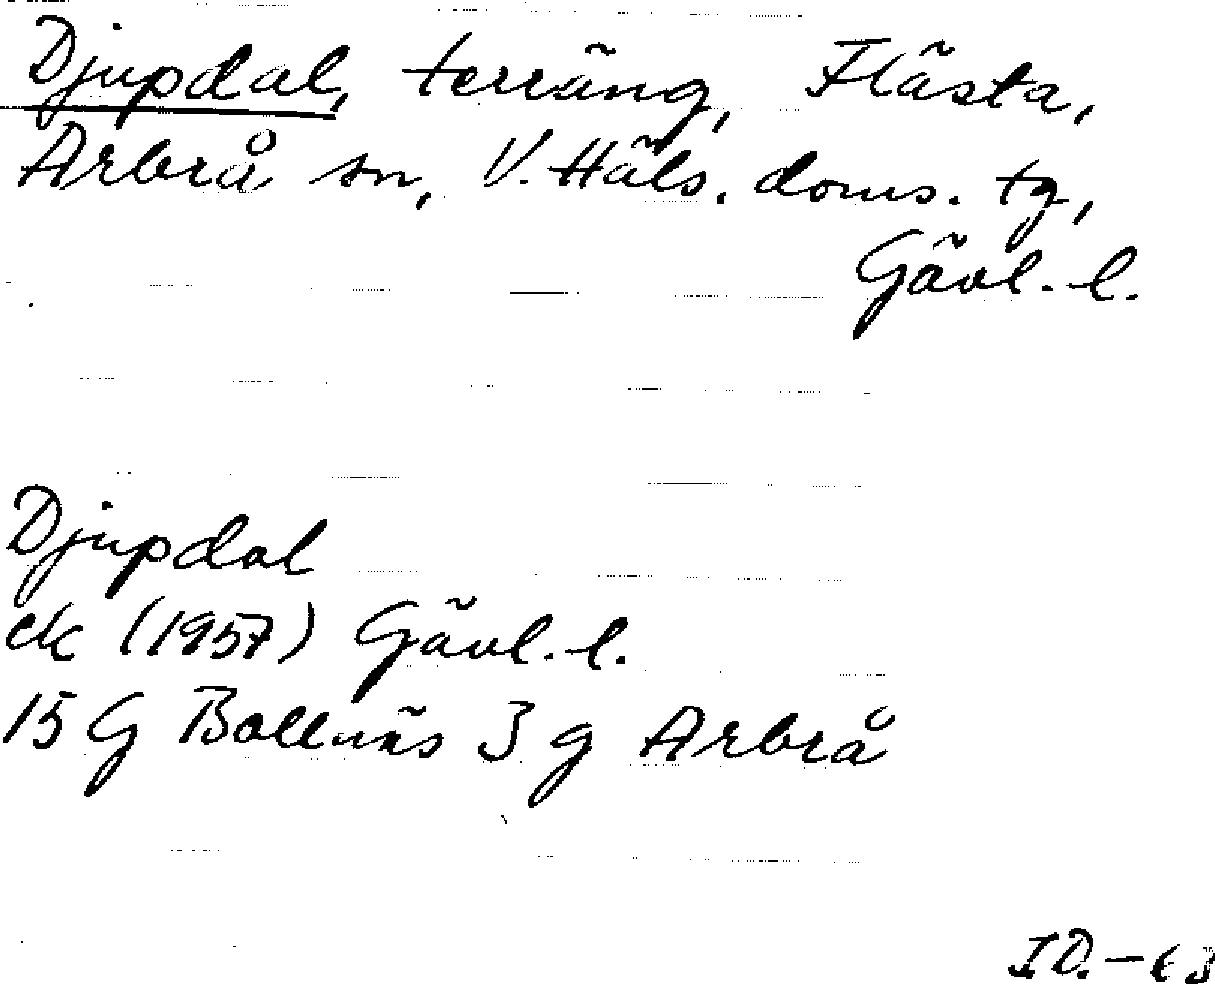 Djupdal, terräng, Flästa,
Arbrå sn, V. Häls. doms. tg,
Gävl. l.
Djupdal
ek (1957) Gävl. l.
15 G Bollnäs 3 g Arbrå
I D. - 63